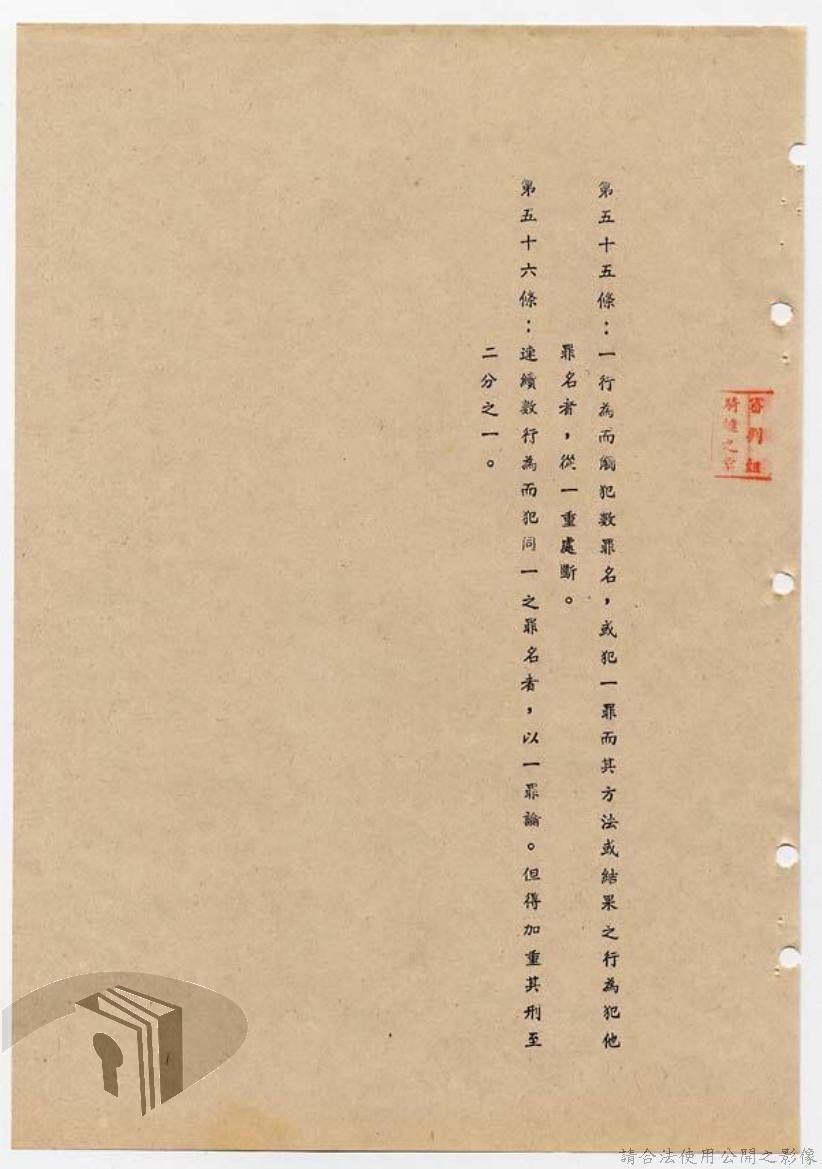 審判組
騎縫之章
第五十五條：一行為而觸犯數罪名，或犯一罪而其方法或結果之行為犯他
罪名者，從一重處斷。
第五十六條：連續數行為而犯同一之罪名者，以一罪論。但得加重其刑至
二分之一。
請合法使用公開之影像